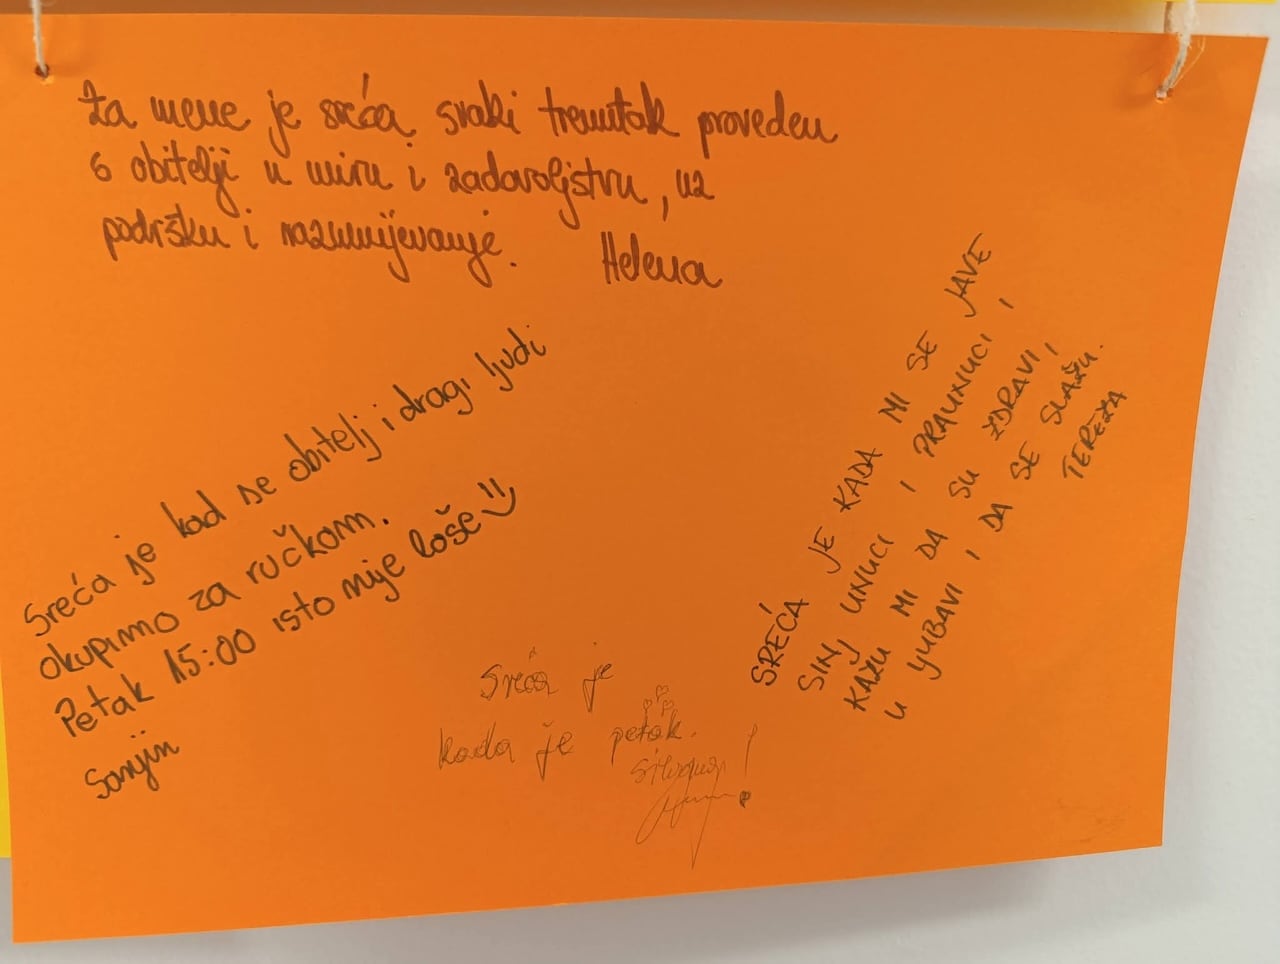 Za mene je sreća svaki trenutak proveden
s obitelji u miru i zadovoljstvu, uz
podršku i razumijevanje. Helena
Sreća je kad se obitelj i dragi ljudi
okupimo za ručkom.
Petak 15:00 isto nije loše
Sanjin
Sreća je
kada je petak.
Silvana!
SREĆA JE KADA MI SE JAVE
SIN, UNUCI I PRAUNUCI I
KAŽU MI DA SU ZDRAVI,
U LJUBAVI I DA SE SLAŽU.
TEREZA